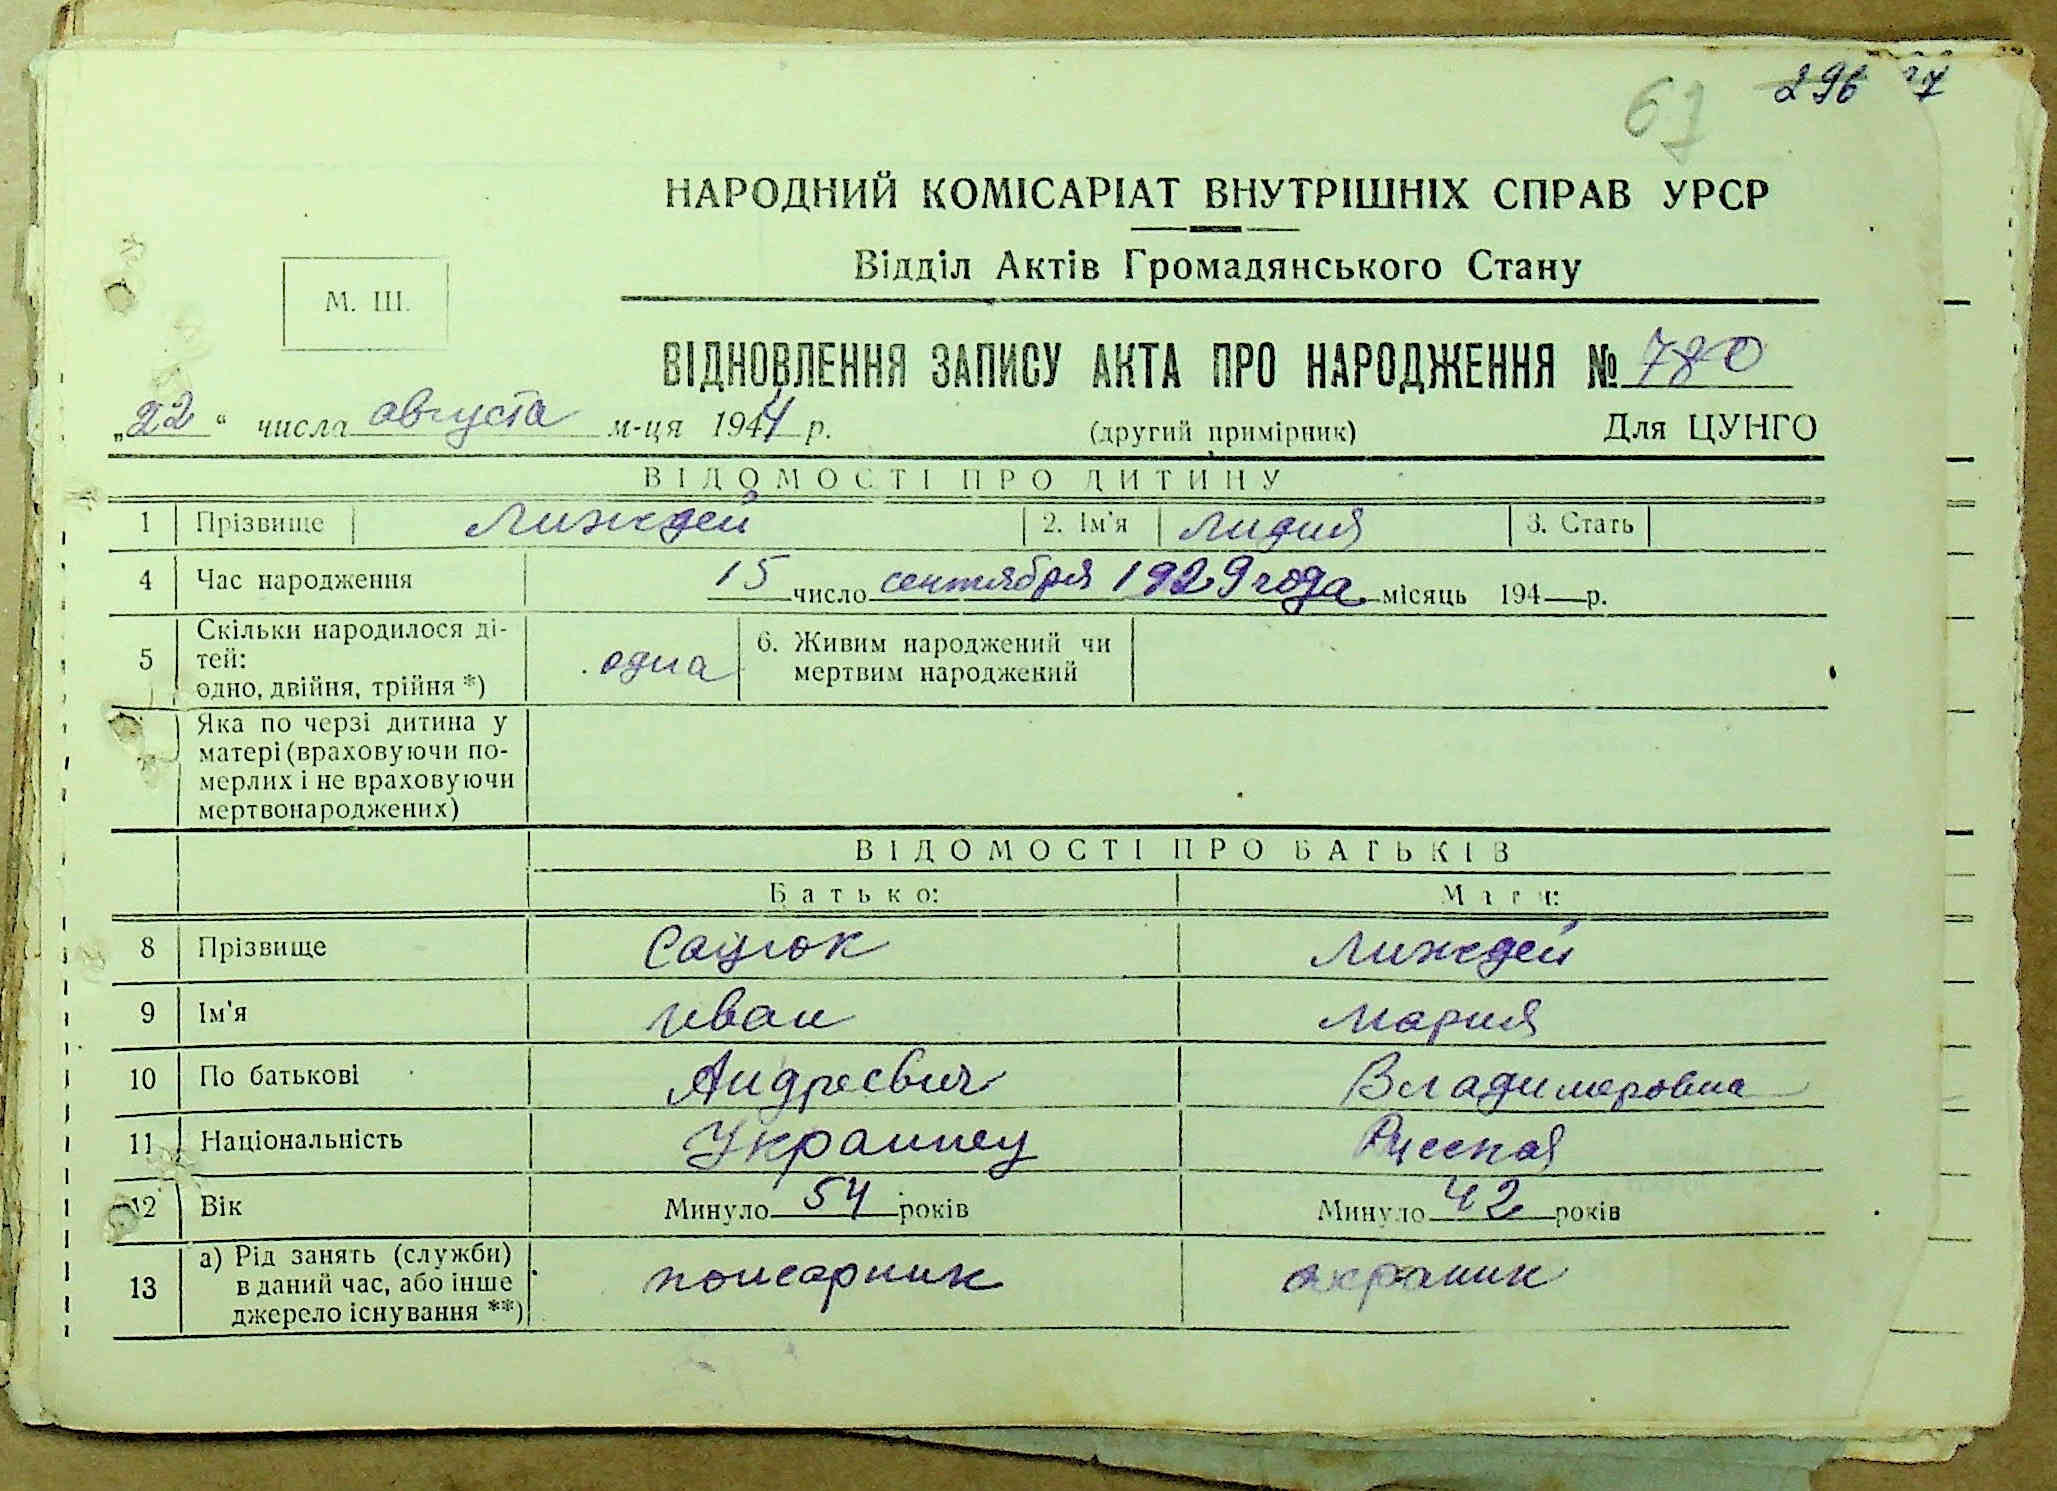 67
296
НАРОДНИЙ КОМІСАРІАТ ВНУТРІШНІХ СПРАВ УРСР
Відділ Актів Громадянського Стану
М. Ш.
ВІДНОВЛЕННЯ ЗАПИСУ АКТА ПРО НАРОДЖЕННЯ № 780
„22“ числа августа м-ця 1944 р. (другий примірник) Для ЦУНГО
ВІДОМОСТІ ПРО ДИТИНУ
1 Прізвище Лиждей 2. Ім'я Лидия 3. Стать
4 Час народження 15 число сентября 1929 года місяць 194—р.
5 Скільки народилося ді-
тей:
одно, двійня, трійня *) одна 6. Живим народжений чи
мертвим народжений
Яка по черзі дитина у
матері (враховуючи по-
мерлих і не враховуючи
мертвонароджених)
ВІДОМОСТІ ПРО БАТЬКІВ
Батько: Мати:
8 Прізвище Сацюк Лиждей
9 Ім'я Иван Мария
10 По батькові Андреевич Владимировна
11 Національність Украинец Русская
12 Вік Минуло 54 років Минуло 42 років
13 а) Рід занять (служби)
в даний час, або інше
джерело існування **) пожарник охраник